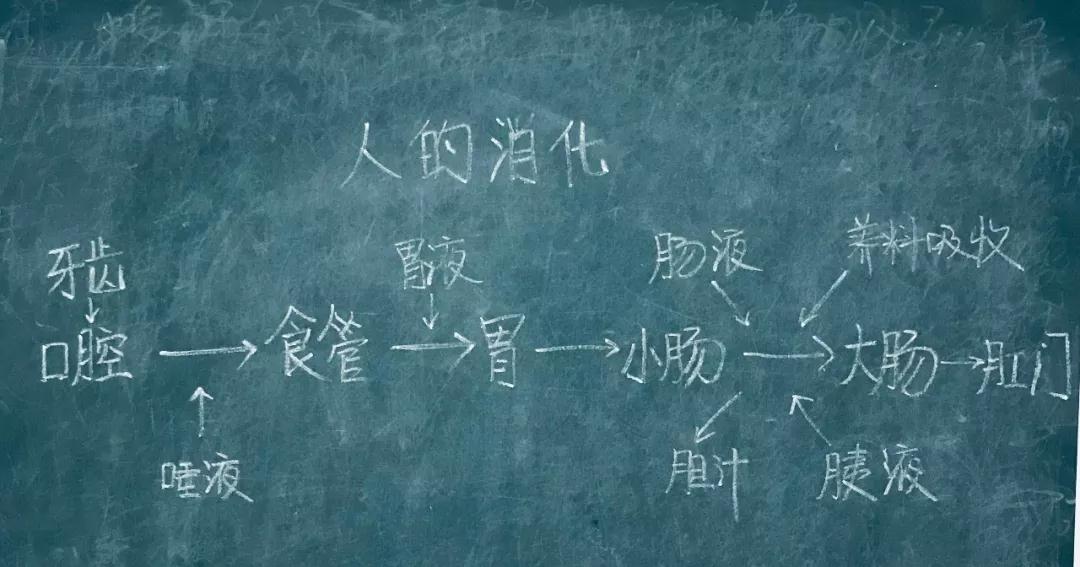 人的消化
牙齿 胃液 肠液 养料吸收
口腔 → 食管 → 胃 → 小肠 → 大肠 → 肛门
唾液 胆汁 胰液